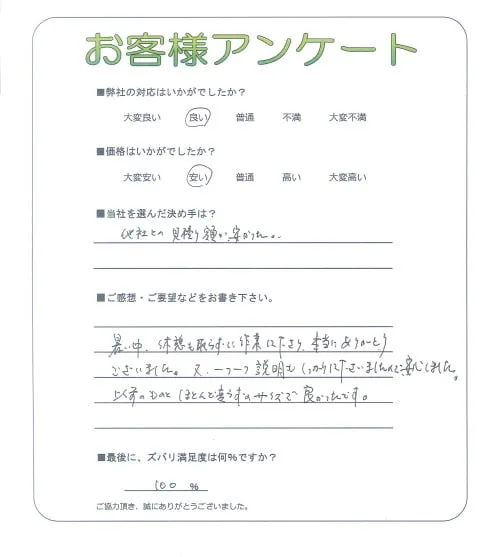 お客様アンケート
■弊社の対応はいかがでしたか?
大変良い 良い 普通 不満 大変不満
■価格はいかがでしたか?
大変安い 安い 普通 高い 大変高い
■当社を選んだ決め手は?
他社との見積り額が安かった。
■ご感想・ご要望などをお書き下さい。
暑い中、休憩も取らずに作業して下さり、本当にありがとう
ございました。又、一つ一つ説明もしっかりして下さいましたので安心しました。
以前のものとほとんど違うずのサイズで良かったです。
■最後に、ズバリ満足度は何%ですか?
100 %
ご協力頂き、誠にありがとうございました。